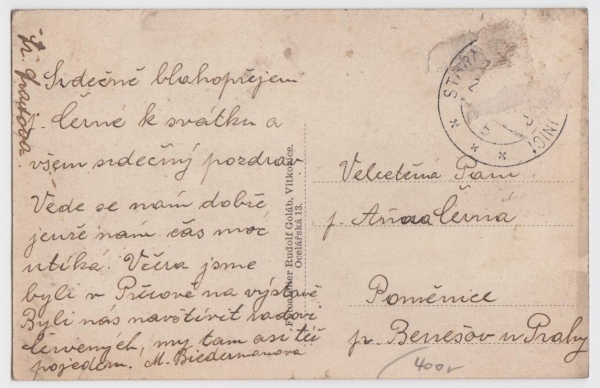 Srdečně blahopřejem
j. Černé k svátku a
všem srdečný pozdrav
Vede se nám dobře
jenže nám čas moc
utíká. Včera jsme
byli v Přerově na výstavě,
Byli nás navštívit
Červených, my tam asi též
pojedem. M. Biedermanová
Fotoatelier Rudolf Goláb, Vítkovice.
Ocelářská 13.
STARÁ
Velectěná Paní
p. Anna Černá
Poměnice
p. Benešov u Prahy
400r